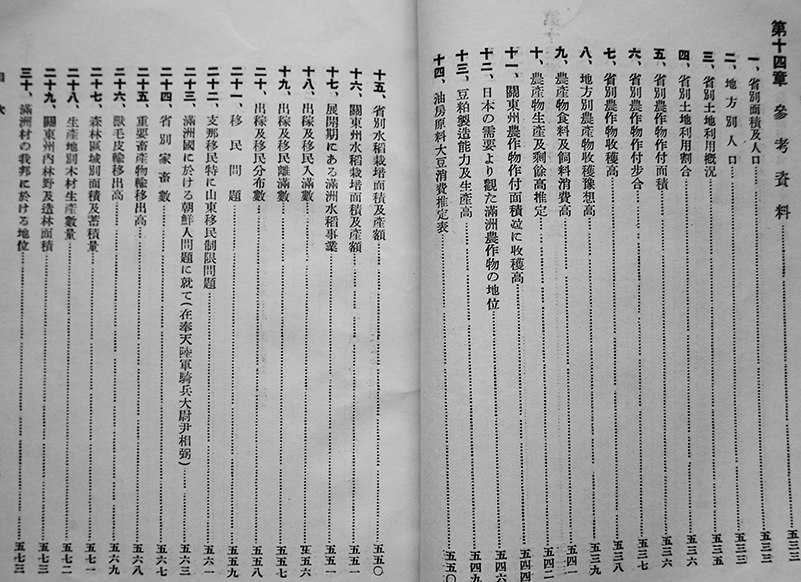 第十四章 參考資料
一、省別面積及人口……五三三
二、地方別人口……五三三
三、省別土地利用概況……五三三
四、省別土地利用割合……五三六
五、省別農作物作付面積……五三六
六、省別農作物作付步合……五三七
七、省別農作物收穫高……五三八
八、地方別農產物收穫豫想高……五三九
九、農產物食料及飼料消費高……五四一
十、農產物生產及剩餘高推定……五四二
十一、關東州農作物作付面積竝に收穫高……五四四
十二、日本の需要より觀た滿洲農作物の地位……五四六
十三、豆粕製造能力及生產高……五四九
十四、油房原料大豆消費推定表……五五〇
十五、省別水稻栽培面積及產額……五五〇
十六、關東州水稻栽培面積及產額……五五一
十七、展開期にある滿洲水稻事業……五五一
十八、出稼及移民入滿數……五五六
十九、出稼及移民離滿數……五五七
二十、出稼及移民分布數……五五八
二十一、移民問題……五五九
二十二、支那移民特に山東移民制限問題……五六一
二十三、滿洲國に於ける朝鮮人問題に就て(在奉天陸軍騎兵大尉尹相弼)……五六三
二十四、省別家畜數……五六七
二十五、重要畜產物輸移出高……五六八
二十六、獸毛皮輸移出高……五六九
二十七、森林區域別面積及蓄積量……五七一
二十八、生產地別木材生產數量……五七二
二十九、關東州內林野及造林面積……五七三
三十、滿洲材の我邦に於ける地位……五七三
目次